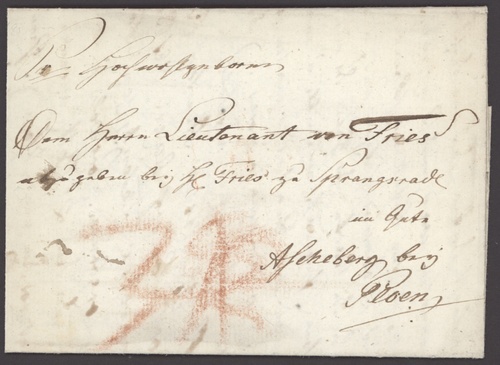 Sr Hochwohlgeboren
Dem Herrn Lieutenant von Fries
abzugeben bey H Fries zu Sprangsrade
im Gute
Ascheberg bey
Ploen